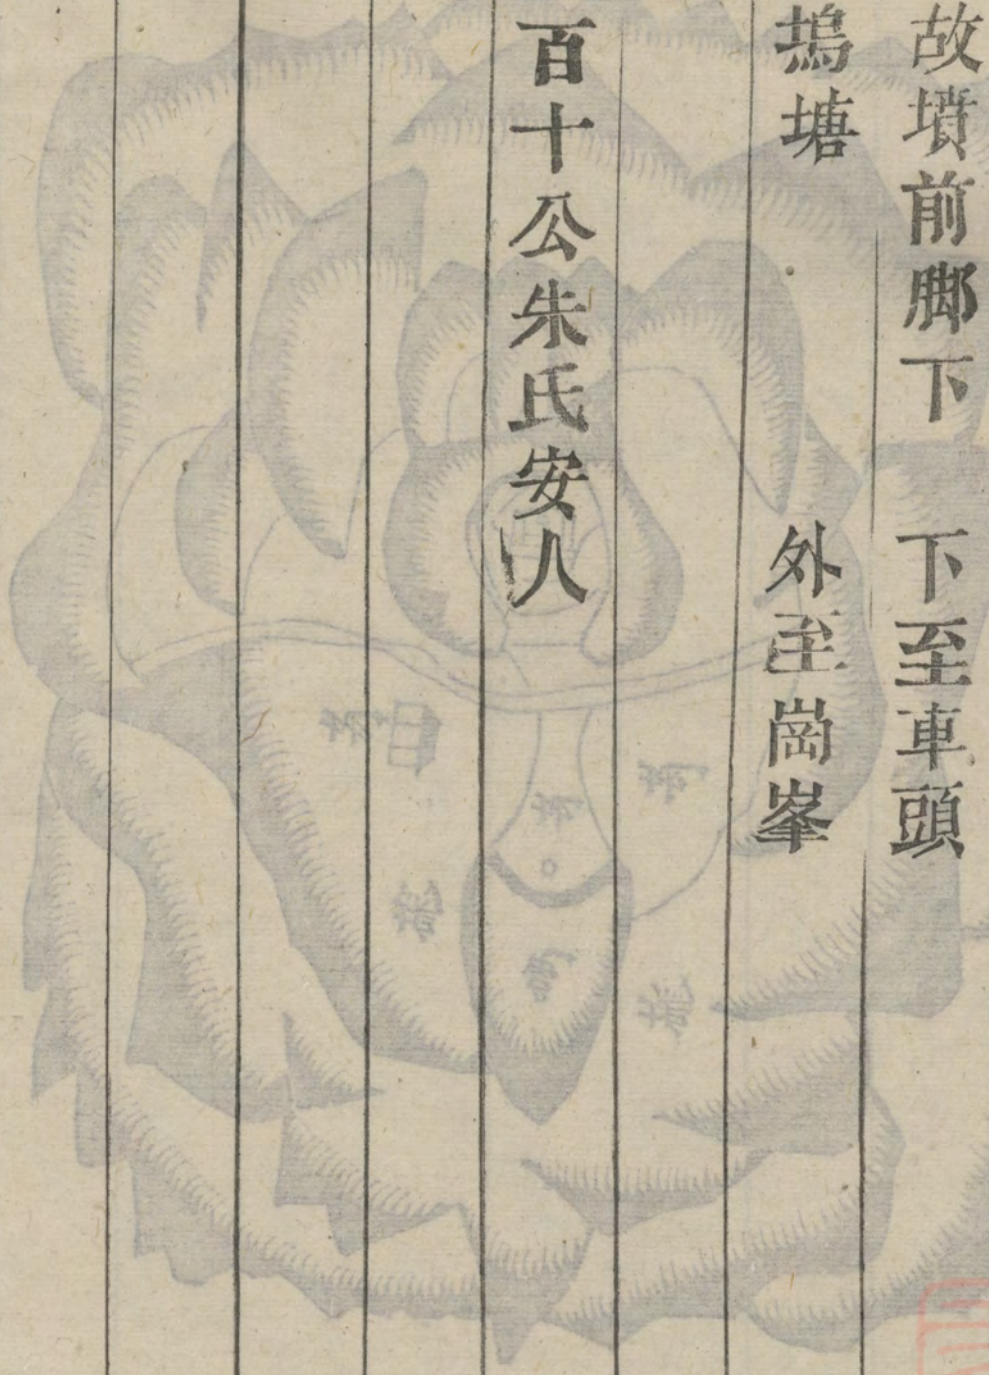 故墳前脚下　下至車頭
塢塘　外至崗峯
百十公朱氏安人